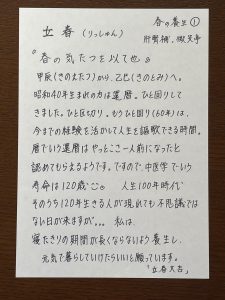 春の養生①
肝腎補、微灸号
立春(りっしゅん)
『春の気たつを以て也』
甲辰(きのえたつ)から、乙巳(きのとみ)へ。
昭和40年生まれの方は還暦。ひと回りして
きました。ひと区切り。もうひと回り(60年)は、
今までの経験を活かして人生を謳歌できる時間。
暦でいう還暦はやっとここ一人前になったと
認めてもらえるようです。ですので、中医学でいう
寿命は120歳
人生100年時代
そのうち120年生きる人が現れても不思議では
ない日が来ますが。。。私は
寝たきりの期間が長くならないよう養生し、
元気で暮らしていけたらいいと願っています。
「立春大吉」